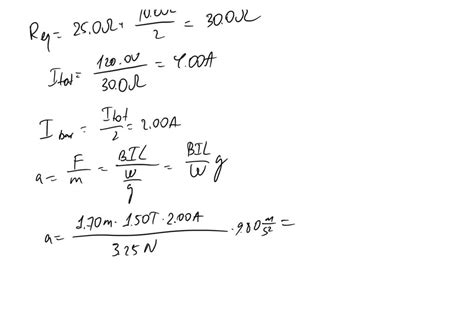 Req = 25.0Ω + 10.0Ω/2 = 30.0Ω
Itot = 120.0V/30.0Ω = 4.00A
Ibar = Itot/2 = 2.00A
a = F/m = BIL/(w/g) = BIL/w g
a = 1.70m · 1.50T · 2.00A/3.25N · 9.80 m/s² =